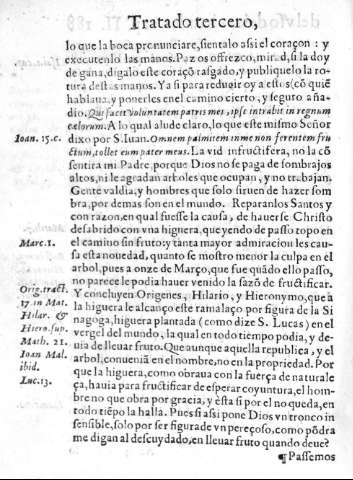 Tratado tercero,
lo que la boca pronunciare, sientalo assi el coraçon: y
executenlo las manos. Paz os offrezco, mirad, si la doy
de gana, digalo este coraçõ rasgado, y publiquelo la ro-
tura destas manos. Ya si para reduzir oy a estos (cõ quiẽ
hablaua, y ponerles en el camino cierto, y seguro aña-
dio. Qui facit voluntatem patris mei, ipse intrabit in regnum
cælorum. A lo qual alude claro, lo que este mismo Señor
Ioan. 15. c.
dixo por S. Iuan. Omnem palmitem in me non ferentem fru
ctum, tollet eum pater meus. La vid infructifera, no la cõ
sentira mi Padre, porque Dios no se paga de sombrajos
altos, ni le agradan arboles que ocupan, y no trabajan.
Gente valdia, y hombres que solo siruen de hazer som
bra, por demas son en el mundo. Reparanlos Santos y
con razon, en qual fuesse la causa, de hauerse Christo
desabrido con vna higuera, que yendo de passo topo en
Marc. 1.
el camino sin fruto; y tanta mayor admiracion les cau-
sa esta nouedad, quanto se mostro menor la culpa en el
arbol, pues a onze de Março, que fue quãdo ello passo,
no parece le podia hauer venido la sazõ de fructificar.
Orig. tract.
17 in Mat.
Hilar. &
Hiero. sup.
Math. 21.
Ioan Mal.
ibid.
Luc. 13.
Y concluyen Origenes, Hilario, y Hieronymo, que à
la higuera le alcanço este ramalaço por figura de la Si
nagoga, higuera plantada (como dize S. Lucas) en el
vergel del mundo, la qual en todo tiempo podia, y de-
uia de lleuar fruto. Que aunque aquella republica, y el
arbol, conuenià en el nombre, no en la propriedad. Por
que la higuera, como obraua con la fuerça de naturale
ça, hauia para fructificar de esperar coyuntura, el hom-
bre no que obra por gracia, y èsta si por el no queda, en
todo tiẽpo la halla. Pues si assi pone Dios vn tronco in
sensible, solo por ser figura de vn pereçoso, como põdra
me digan al descuydado, en lleuar fruto quando deue?
¶ Passemos